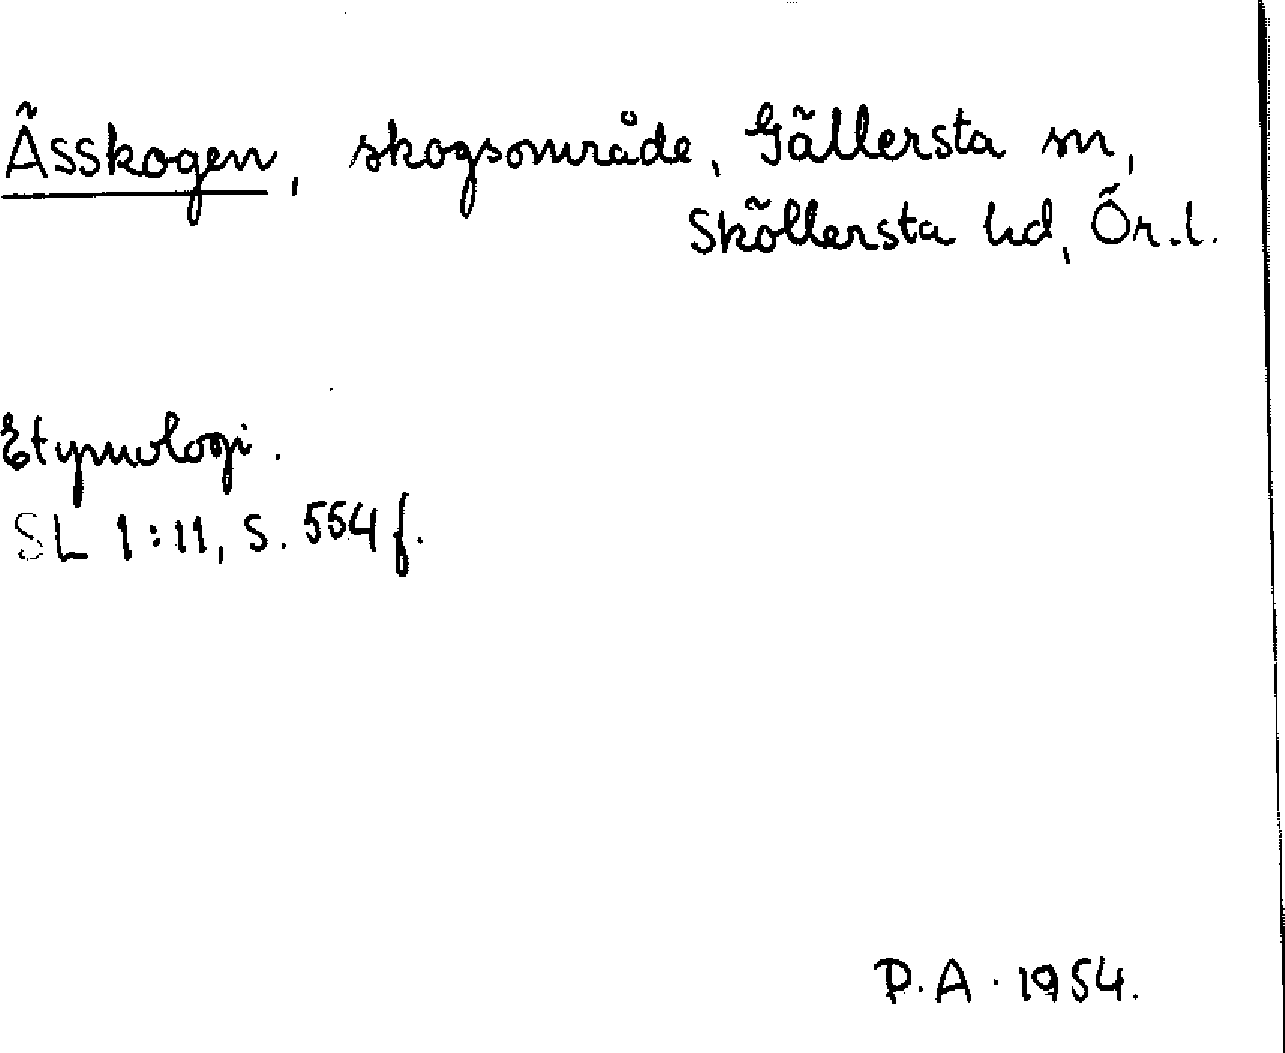 Ässkogen, skogsområde, Gällersta sn,
Sköllersta hd, Ör.l.
Etymologi.
SL 1:11, s. 554 f.
P.A. 1954.